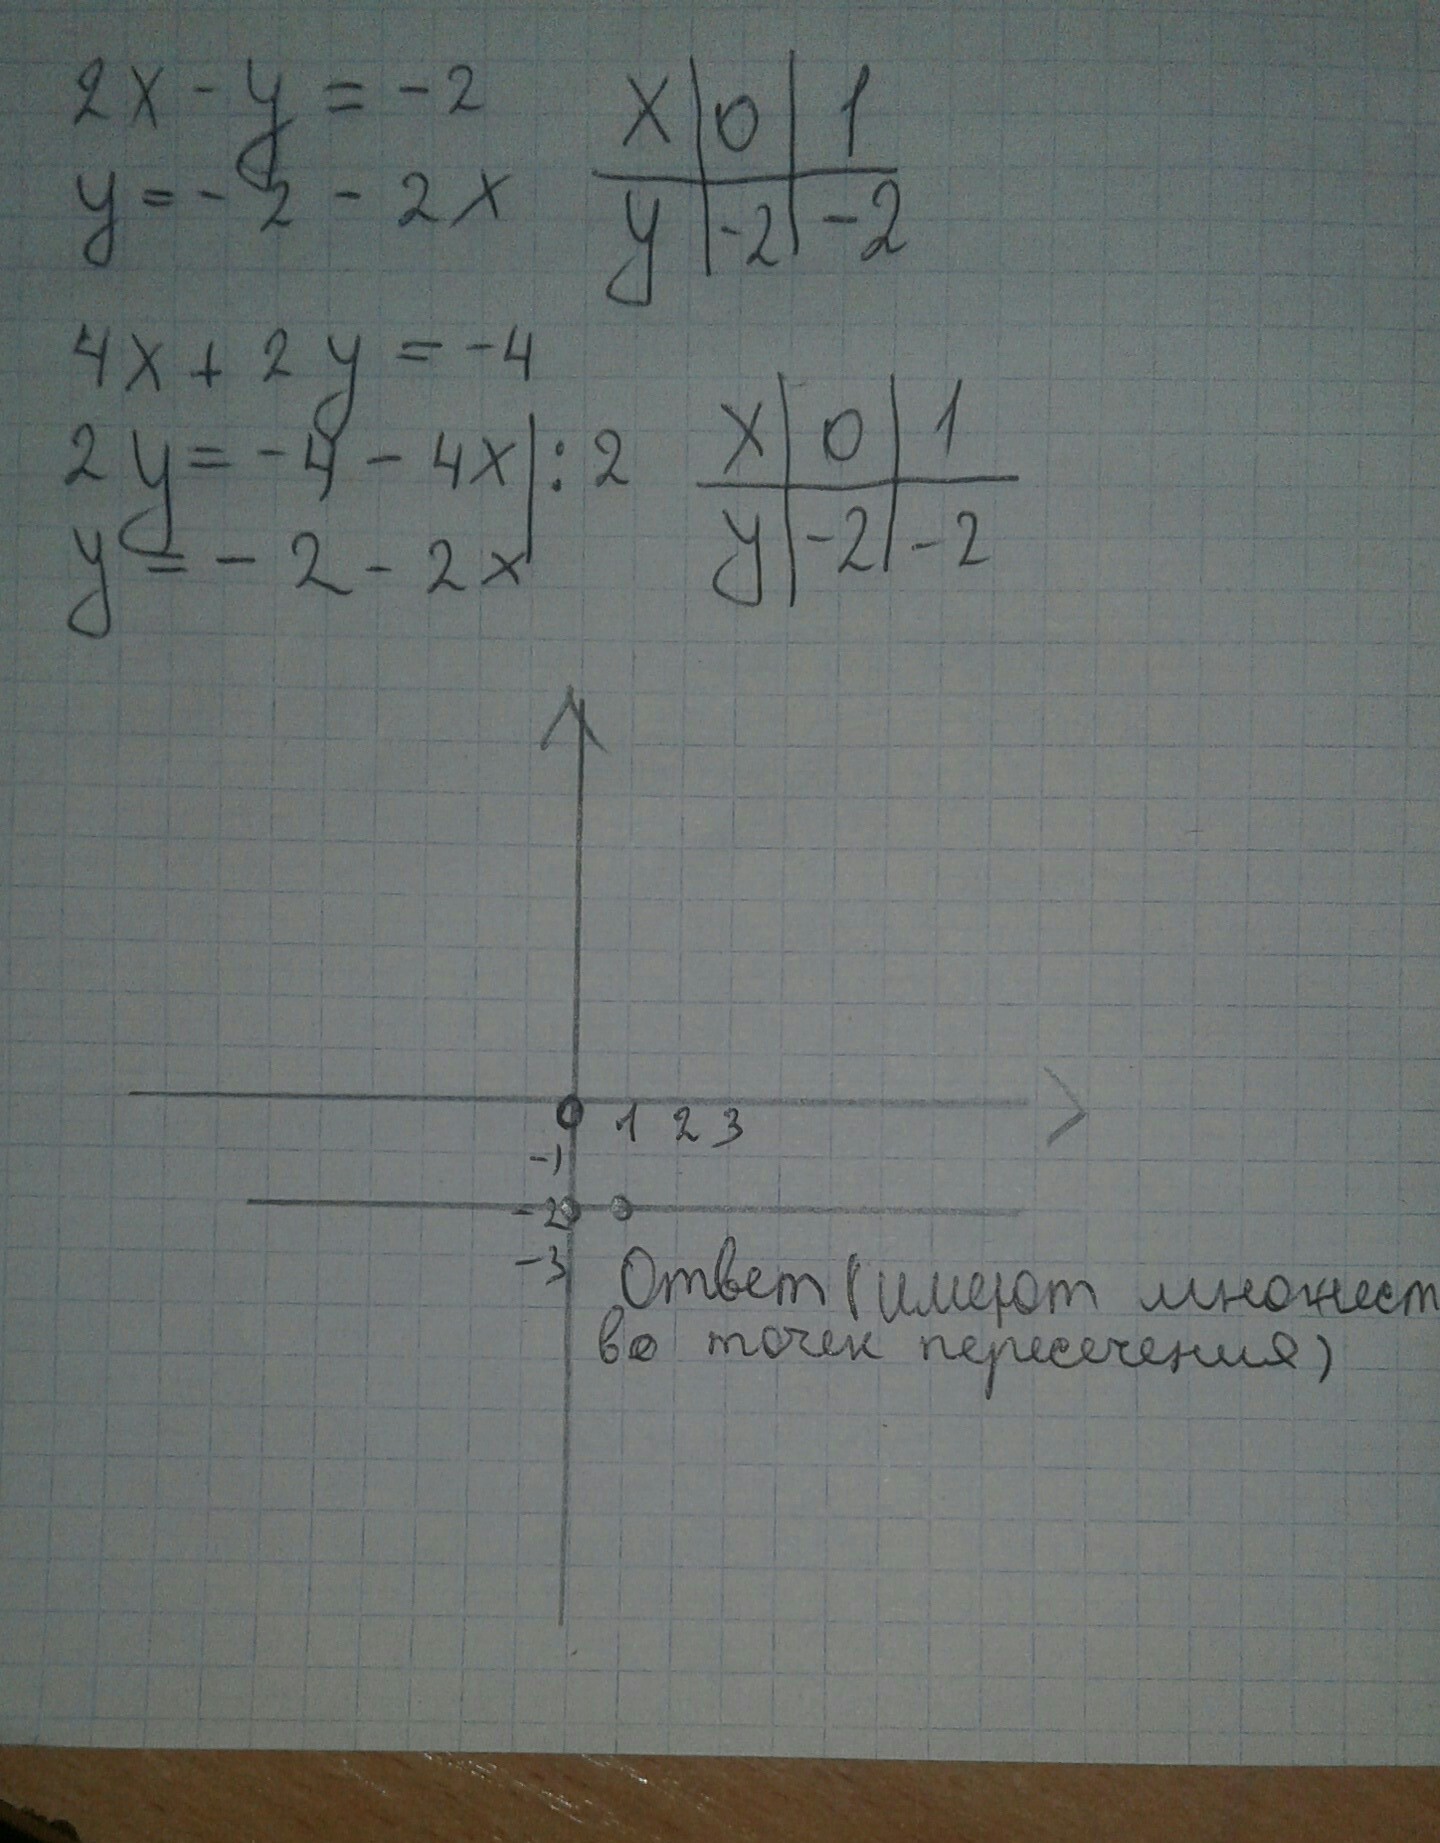 2x - y = -2
y = -2 - 2x
x | 0 | 1
y | -2 | -2
4x + 2y = -4
2y = -4 - 4x | : 2
y = - 2 - 2x
x | 0 | 1
y | -2 | -2
0 1 2 3
-1
-2
-3
Ответ (имеют множест
во точек пересечения)